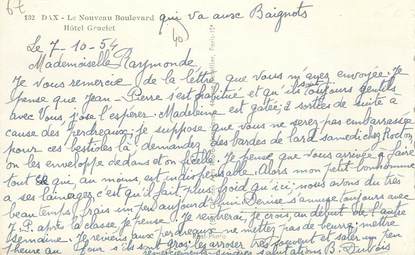 132 DAX - Le Nouveau Boulevard
Hôtel Graciet
qui va aux Baignots
Le 7-10-54
Mademoiselle Raymonde
Je vous remercie de la lettre que vous m'avez envoyée. Je
pense que Jean-Pierre s'est habitué et qu'ils sont toujours gentils
avec Vous, j'ose l'espérer. Madeleine est gatée; 2 sorties de suite a
cause des perdreaux; je suppose que vous ne serez pas embarrassée
pour ces bestioles là demandez des bardes de lard samedi chez
on les enveloppe dedans et on ficelle. Je pense que vous arrivez à faire
tout ce qui, au moins, est indispensable. Alors mon petit bonhomme
a ses lainages; c'est qu'il fait plus froid qu'ici; nous avons du très
beau temps, frais un peu aujourd'hui. Denise s'amuse toujours avec
J.P. après la classe je pense. Je rentrerai, je crois, au début de l'autre
semaine. Je reviens aux perdreaux ne mettez pas de beurre; mettre
1 heure au four s'ils sont gros; les arroser très souvent et saler un peu
remerciements sincères salutations B. Dubois